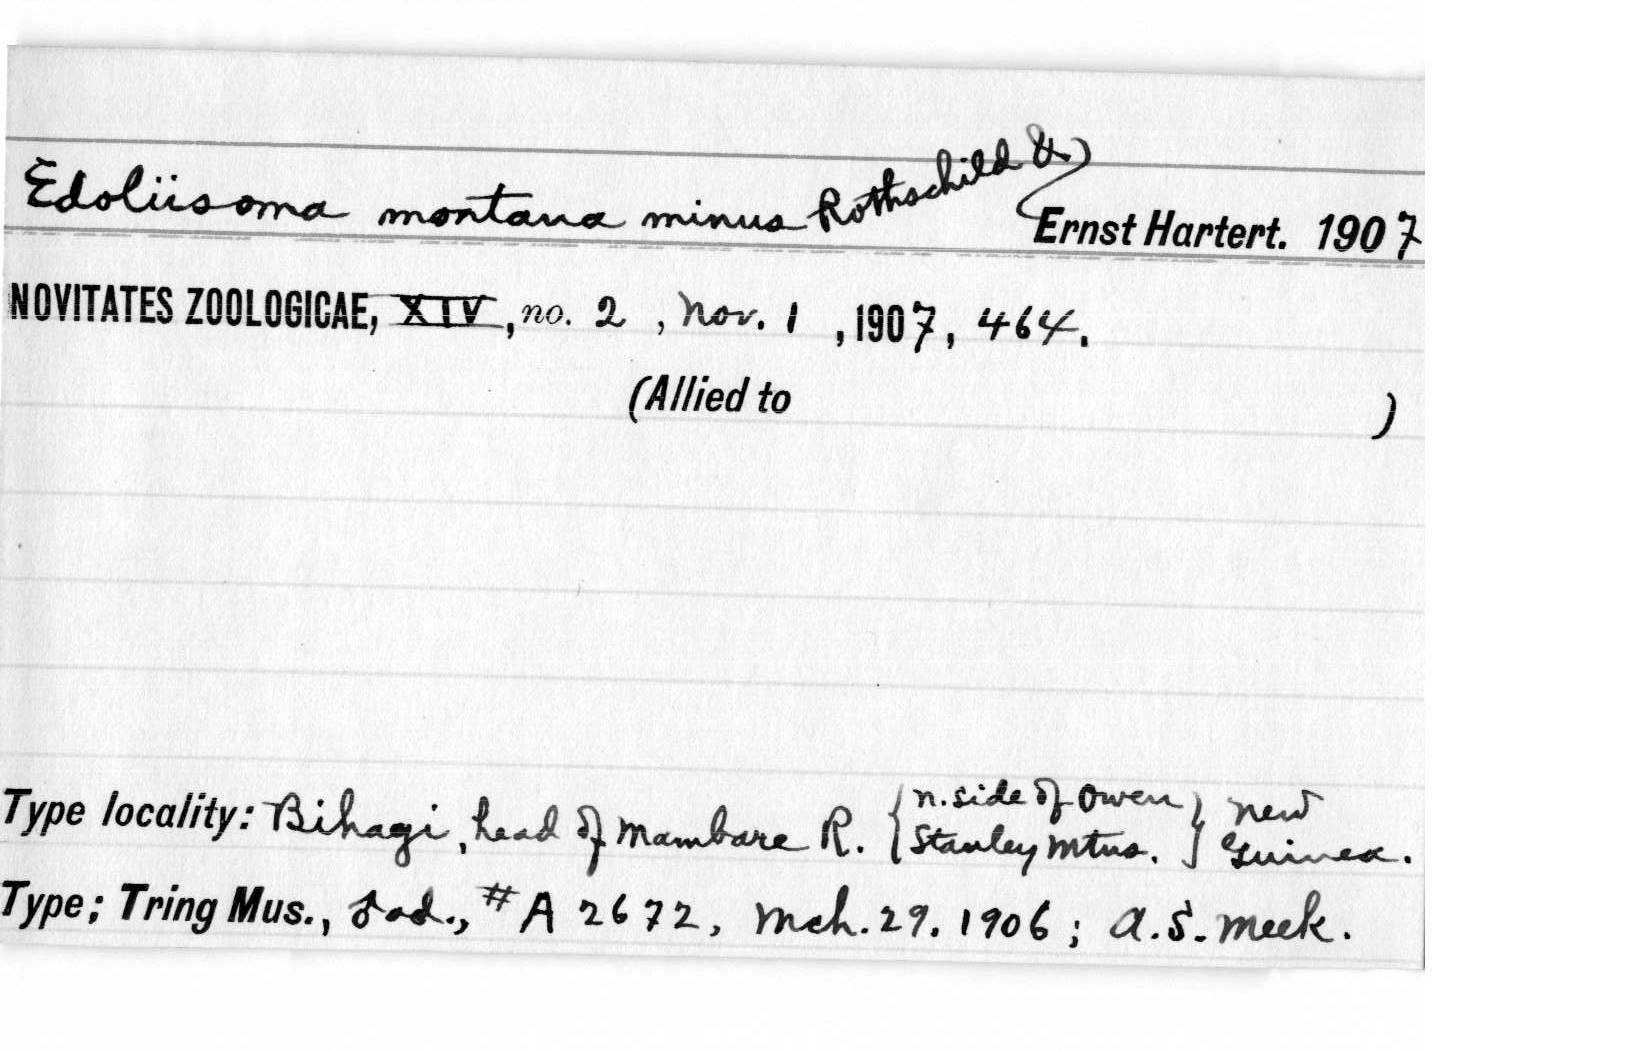 Edoliisoma montana minus Rothschild &
Ernst Hartert. 1907
NOVITATES ZOOLOGICAE, XIV, no. 2, Nov. 1, 1907, 464.
(Allied to )
Type locality: Bihagi, head of Mambare R. { n. side of Owen Stanley Mtns. } New Guinea.
Type; Tring Mus., ♂ ad., #A 2672, Mch. 29. 1906; A.S. Meek.